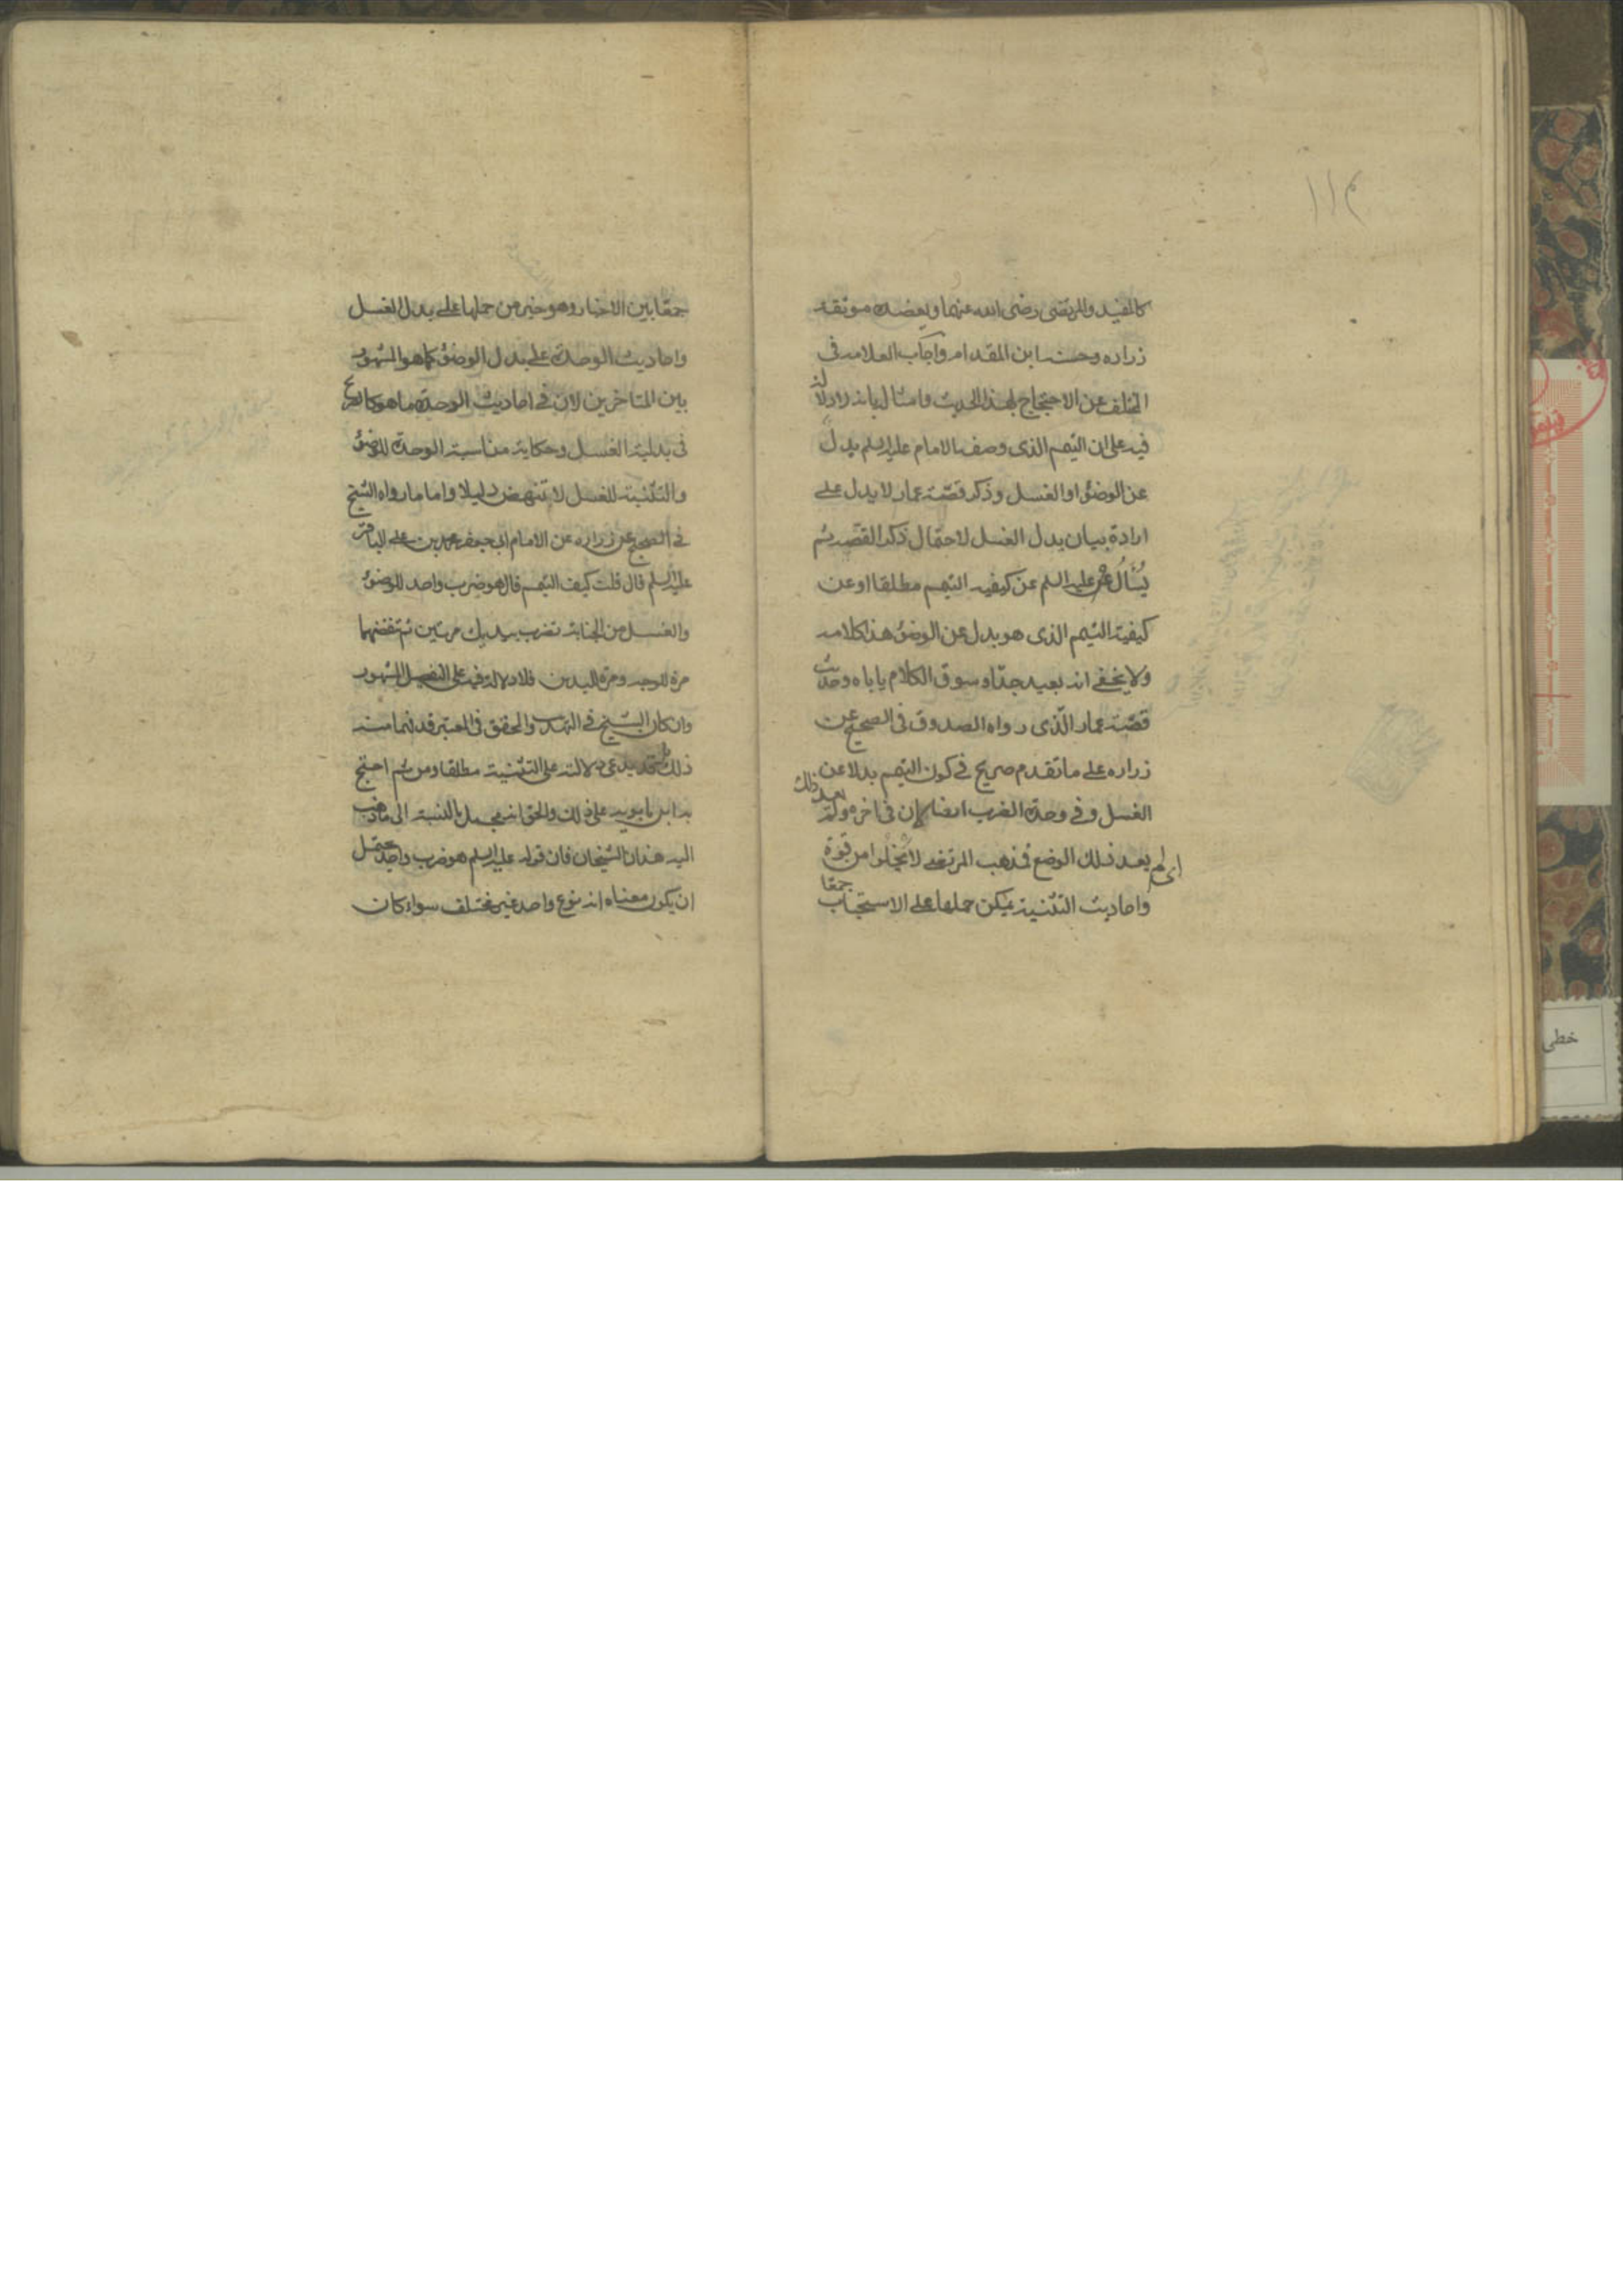 ١١٤
كالمفيد والمرتضى رضى الله عنهما ويعضده موثقة
زراره وحسنة ابن المقدام واجاب العلامه فى
المختلف عن الاحتجاج بهذا الحديث وامثاله بانه لا دلالة
فيه على ان التيمم الذى وصفه الامام عليه السلم بدل
عن الوضوء او الغسل وذكر قصة عمار لا يدل على
ارادة بيان بدل الغسل لاحتمال ذكر القصه ثم
يُسأل عليه السلم عن كيفيه التيمم مطلقا او عن
كيفية التيمم الذى هو بدل عن الوضوء هذا كلامه
ولا يخفى انه بعيد جدّا وسوق الكلام ياباه وحديث
قصّة عمار الذى رواه الصدوق فى الصحيح عن
زراره على ما تقدم صريح فى كون التيمم بدلا عن
الغسل وفى وحدة الضرب ايضا لان فى اخره ولم يعد ذلك
اى لم يعد ذلك الوضع فمذهب المرتضى لا يخلوا من قوة
واحاديث التثنية يمكن حملها على الاستحباب جمعا
جمعًا بين الاخبار وهو خير من حملها على بدل الغسل
واحاديث الوحدة على بدل الوضوء كما هو المشهور
بين المتاخرين لان فى احاديث الوحدة ما هو كالصريح
فى بدلية الغسل وحكاية مناسبة الوحدة للوضوء
والتثنية للغسل لا تنهض دليلا واما ما رواه الشيخ
فى الصحيح عن زراره عن الامام ابى جعفر محمد بن على الباقر
عليه السلم قال قلت كيف التيمم قال هو ضرب واحد للوضوء
والغسل من الجنابة تضرب بيديك مرتين ثم تنفضهما
مرة للوجه ومرة لليدين فلا دلالة فيه على التفصيل المشهور
وان كان الشيخ فى التهذيب والمحقق فى المعتبر قد فهما منه
ذلك يدعى دلالته على التثنية مطلقا ومن ثم احتج
به ابن بابويه على ذلك والحق انه مجمل بالنسبة الى ما ذهب
اليه هذان الشيخان فان قوله عليه السلم هو ضرب واحد يحتمل
ان يكون معناه انه نوع واحد غير مختلف سواء كان
خطى